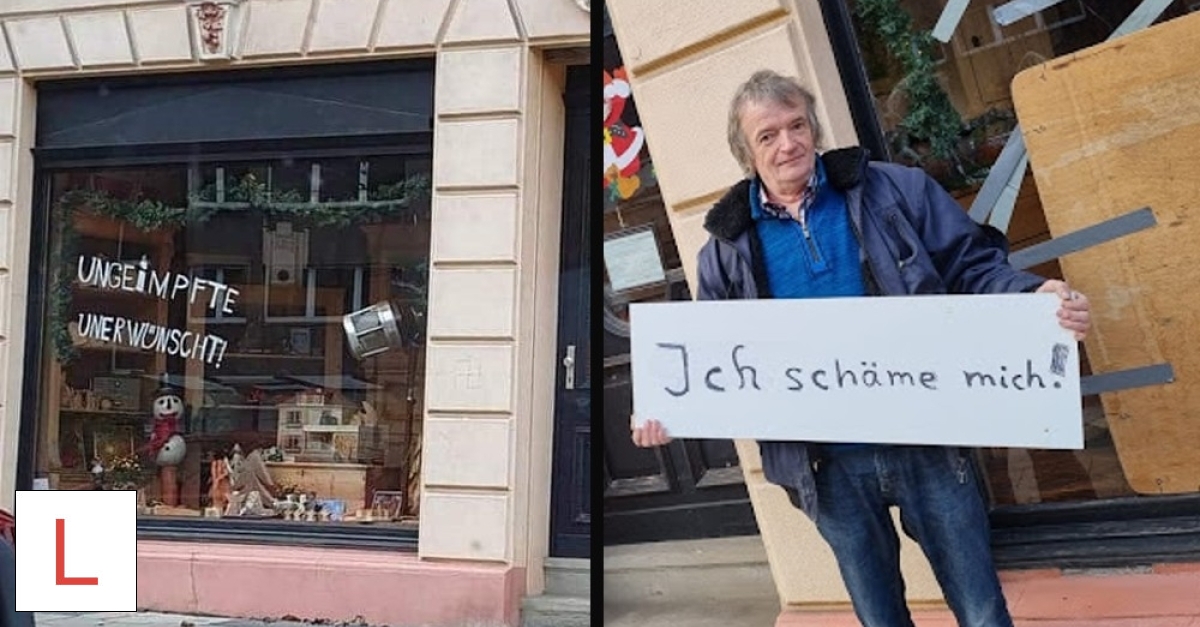 UNGEiMPFTE
UNERWÜNSCHT!
Ich schäme mich!
L